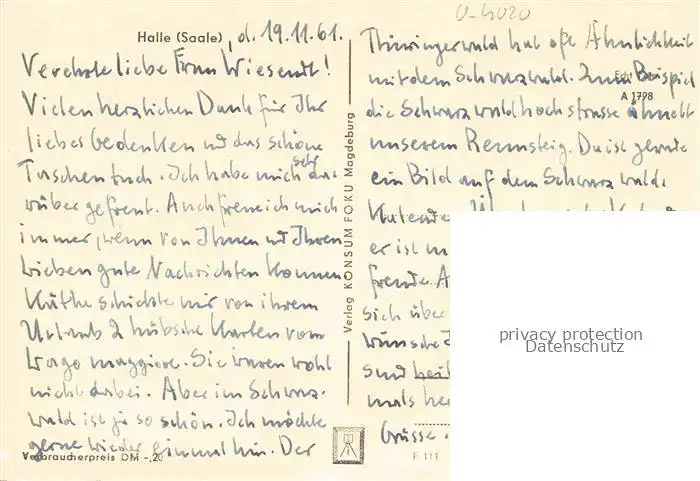 U-4020
Halle (Saale), d. 19.11.61.
Verehrte liebe Frau Wiesendt!
Vielen herzlichen Dank für Ihr
liebes Gedenken u d das schöne
Taschentuch. Ich habe mich sehr da-
rüber gefreut. Auch freue ich mich
immer, wenn von Ihnen u d Ihren
Lieben gute Nachrichten kommen
Käthe schickte mir von ihrem
Urlaub 2 hübsche Karten vom
Lago maggiore. Sie waren wohl
nicht dabei. Aber im Schwarz-
wald ist ja so schön. Ich möchte
gerne wieder einmal hin. Der
Verbraucherpreis DM -,20
Verlag KONSUM FOKU Magdeburg
Thüringerwald hat oft Ähnlichkeit
mit dem Schwarzwald. Zum Beispiel
Echt
A 1798
die Schwarzwaldhochstrasse ähnelt
unserem Rennsteig. Da ist gerade
ein Bild auf dem Schwarzwald-
Kalender
er ist
freude. A
sich übe
wünsche
sind
mals
Grüsse
F 111
privacy protection
Datenschutz